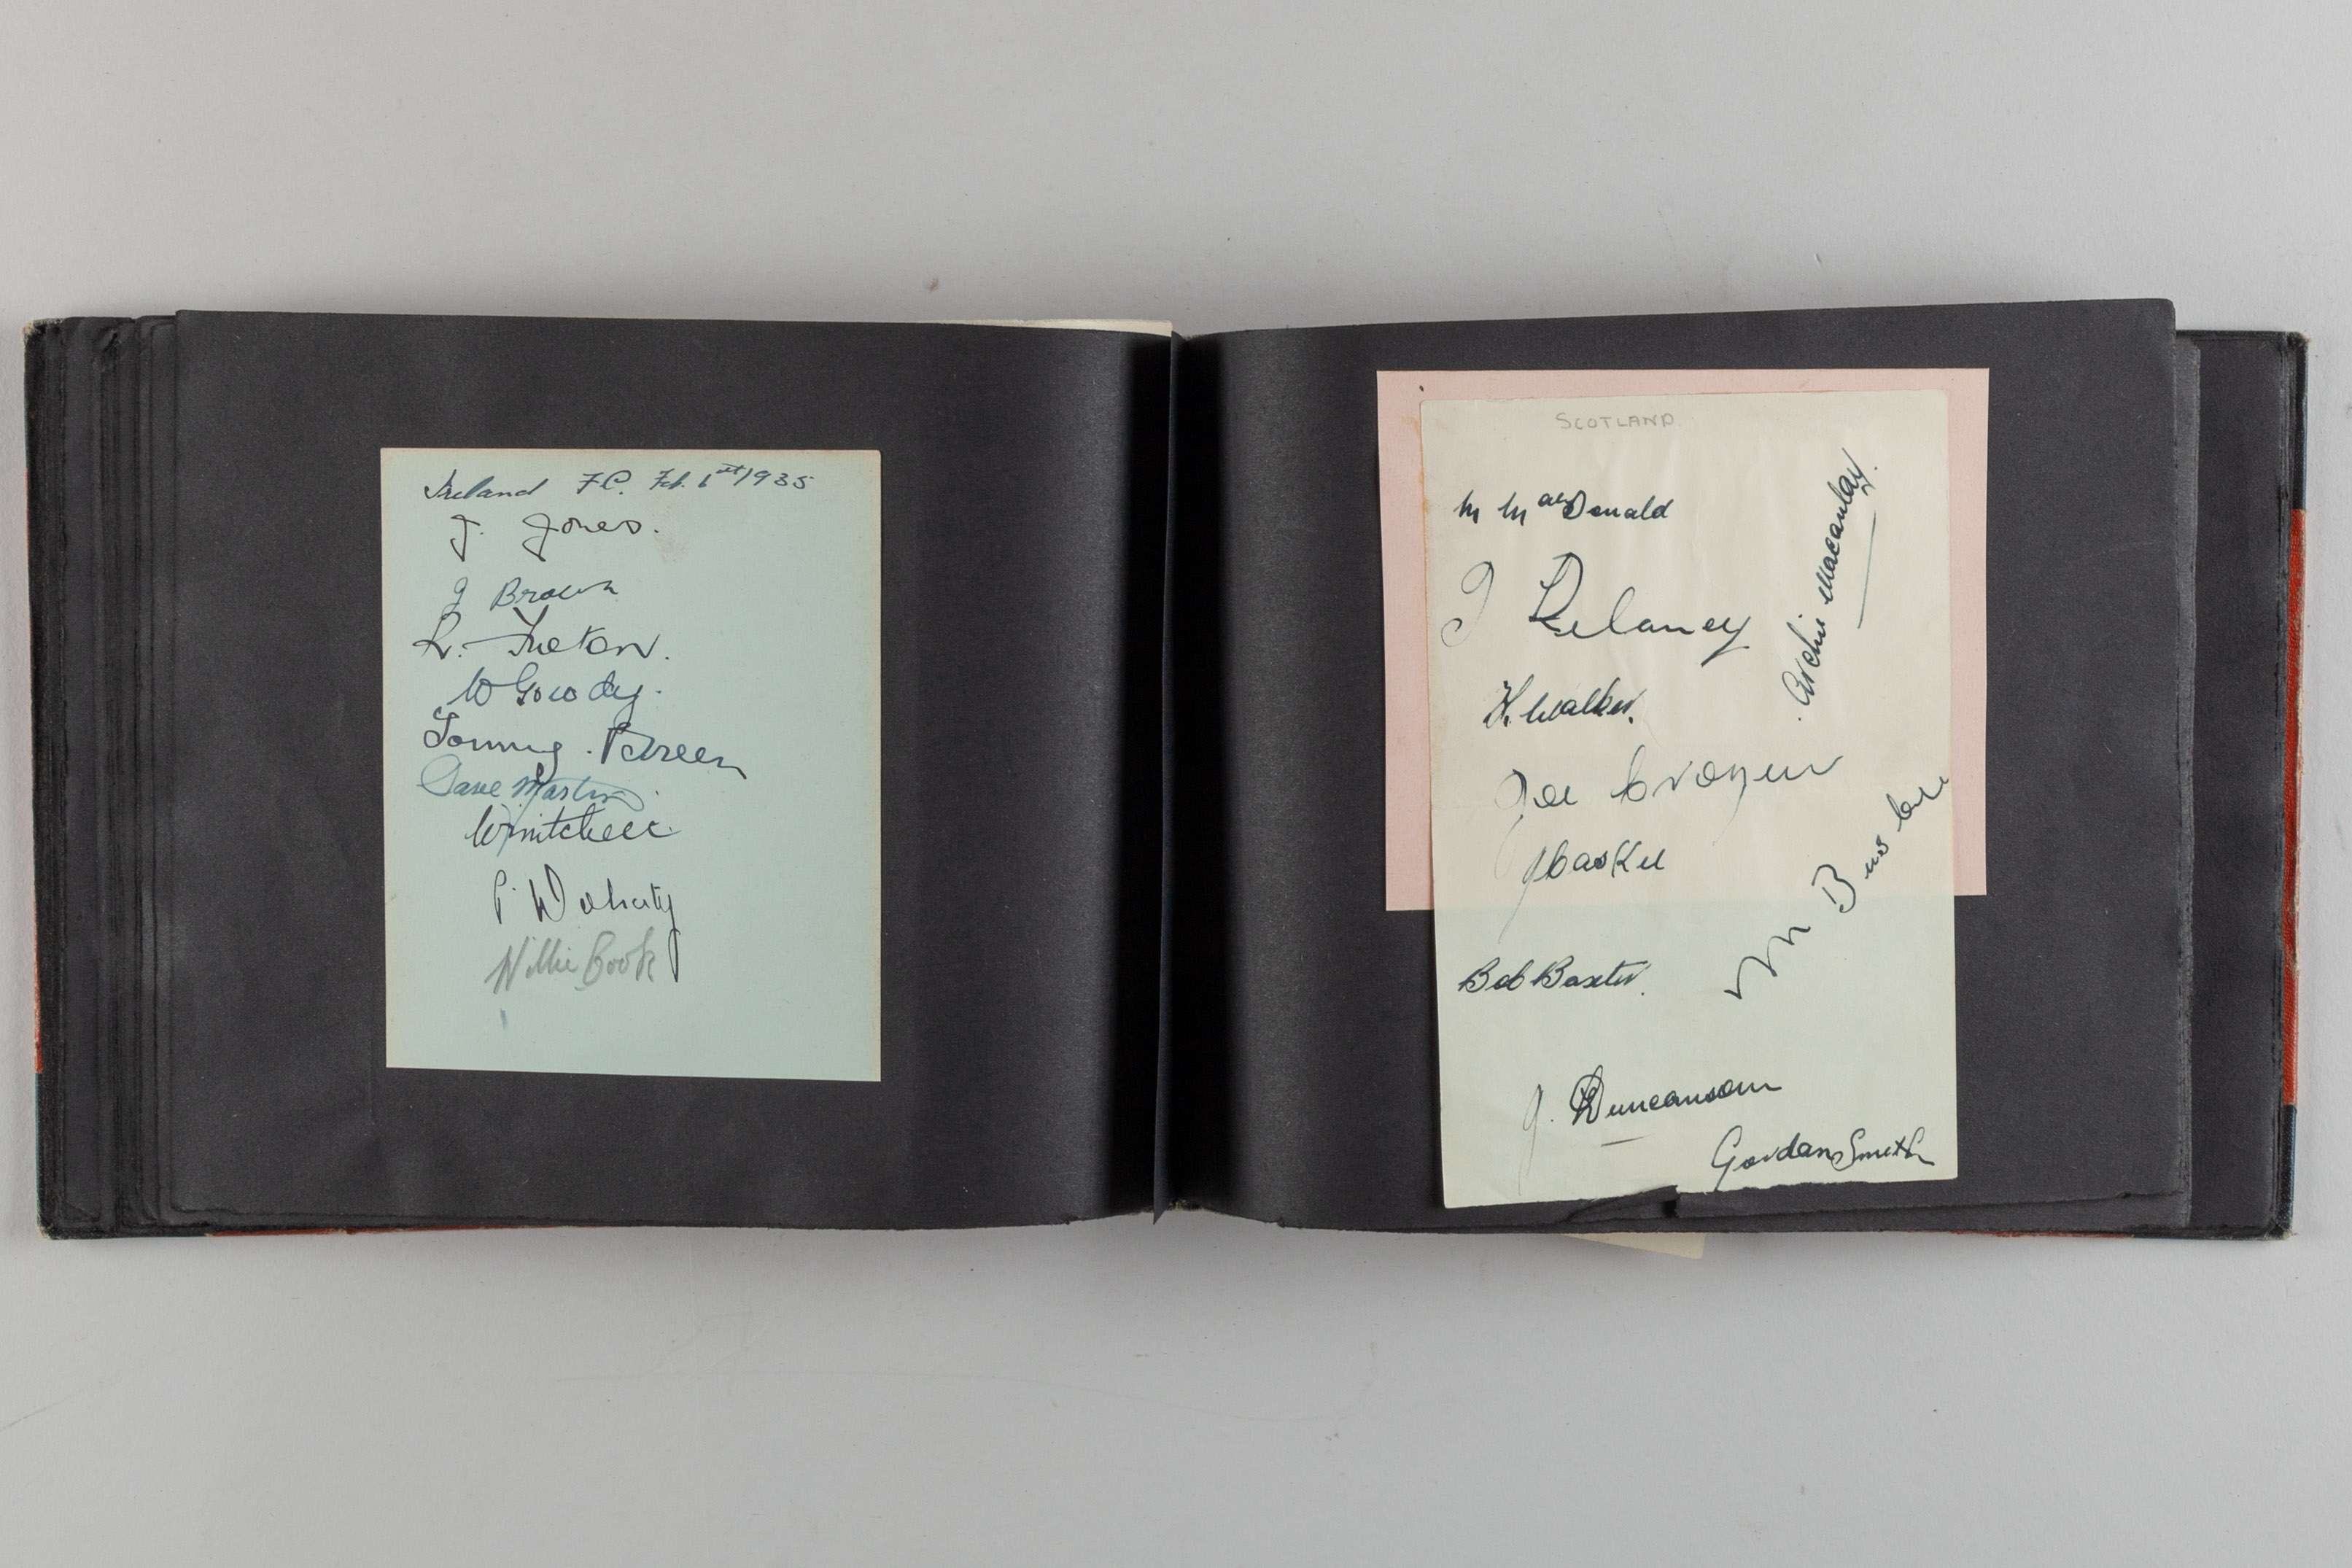 Ireland F.C. Feb. 6st 1935
J. Jones.
J Brown
W Gowdy.
Tommy. Breen
Dave Martin
W mitchell.
P. Doherty
Willie Cook
SCOTLAND
M MacDonald
J Delaney
Archie Macaulay.
T. Walker.
Joe Crozier
J Caskie
M Busby
Bob Baxter.
J. Duncanson
Gordon Smith